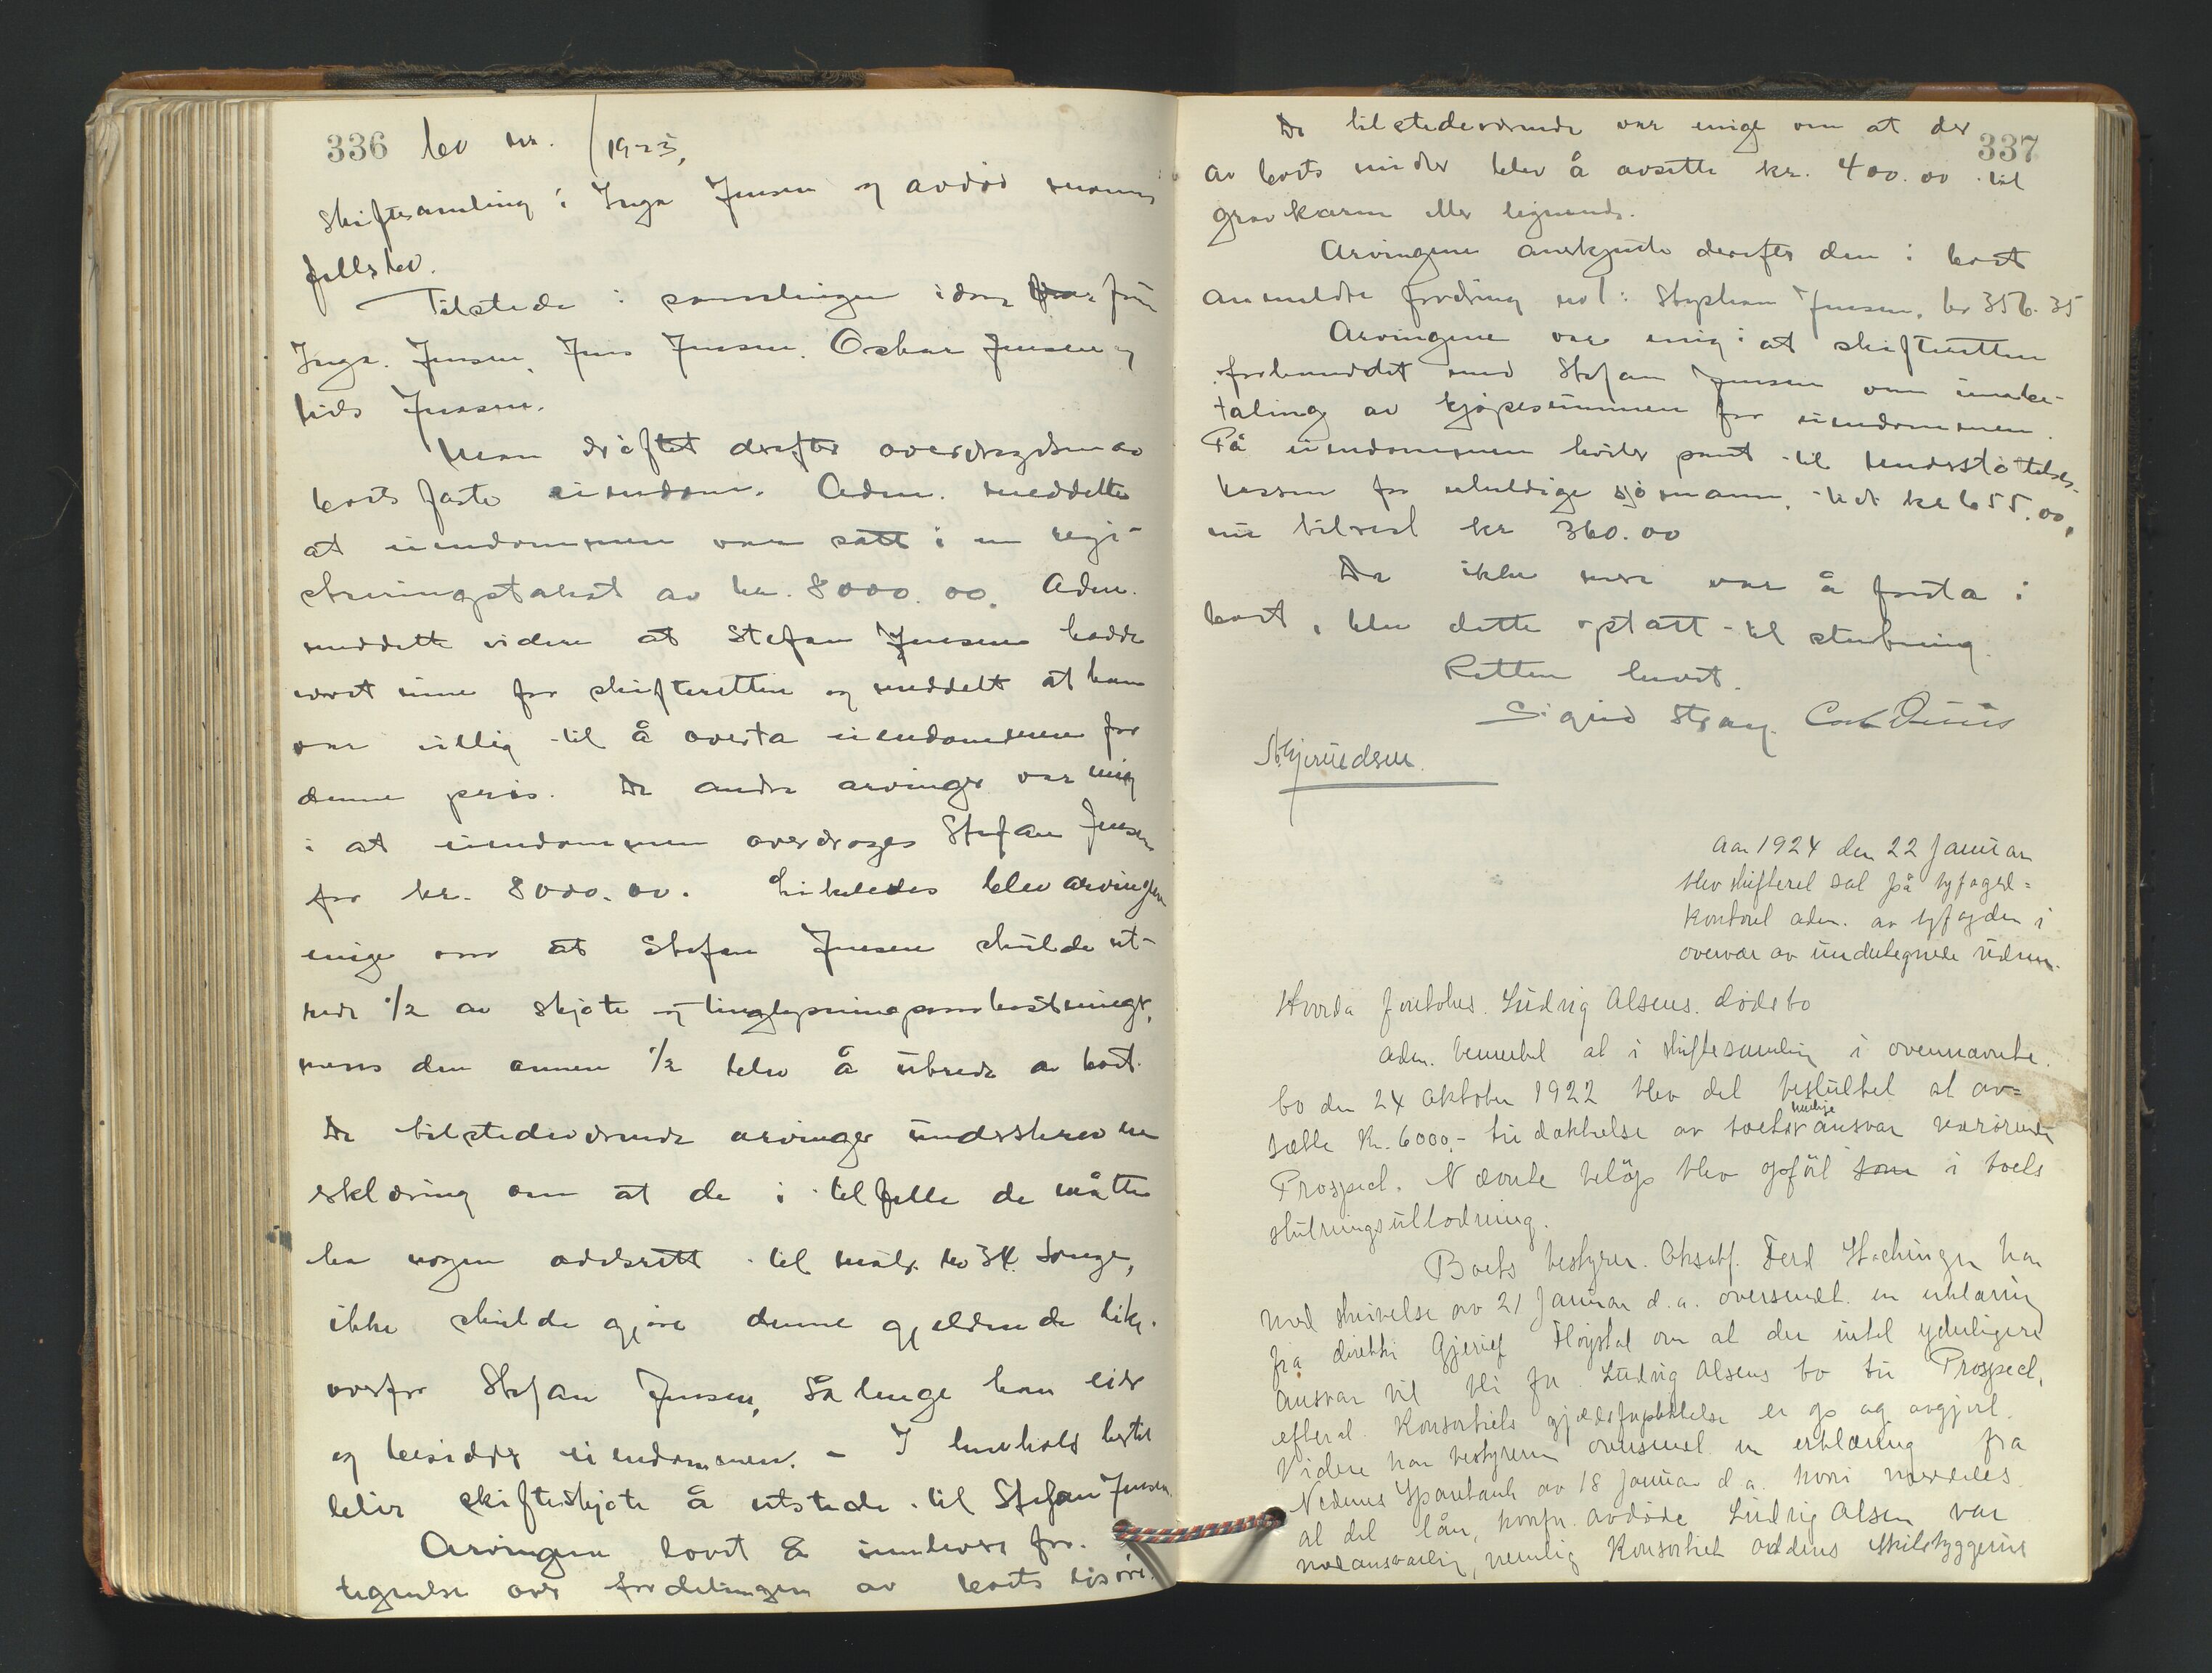 336 bo nr. /1923,
Skiftesamling i Inga Jensen og avdød manns
fellesbo.
Tilstede i samlingen idag fru
Inga Jensen, Jens Jensen, Oskar Jensen og
Nils Jensen.
Man drøftet derefter overdragelsen av
boets faste eiendom. Adm. meddelte
at eiendommen var satt i en regi-
streringstakst av kr. 8000.00. Adm.
meddelte videre at Stefan Jensen hadde
vært inne for skifteretten og meddelt at han
var villig til å overta eiendommen for
denne pris. De andre arvinger var enig
i at eiendommen overdrages Stefan Jensen
for kr. 8000.00. Likeledes blev arvingene
enige om at Stefan Jensen skulde ut-
rede 1/2 av skjøte og tinglysningsomkostninger,
mens den annen 1/2 blev å utrede av boet.
De tilstedeværende arvinger underskrev en
erklæring om at de i tilfelle de måtte
ha nogen odelsrett til matr. no 34. Songe,
ikke skulde gjøre denne gjeldende like-
overfor Stefan Jensen, så lenge han eier
og besidder eiendommen. - I henhold hertil
blir skifteskjøte å utstede til Stefan Jensen.
Arvingene lovet å innlevere for-
tegnelse over fordelingen av boets løsøre.
337
De tilstedeværende var enige om at der
av boets midler blev å avsette kr. 400.00 til
gravkarm eller lignende.
Arvingene anerkjente derefter den i boet
anmeldte fordring no 1: Stephan Jensen, kr 356.35
Arvingene var enig i at skifteretten
forhandlet med Stefan Jensen om innbe-
taling av kjøpesummen for eiendommen.
På eiendommen hviler pant til Understøttelses-
kassen for uheldige sjømann, stort kr 655.00,
nu tilrest kr 360.00
Da ikke mere var å foreta i
boet, blev dette optatt til slutning.
Retten hevet.
Sigurd Stray. Carl Duus
Aar 1924 den 22 Januar
blev skifteret sat på byfoged=
kontoret adm. av byfogden i
overvær av undertegnede vidner.
Hvorda foretokes Ludvig Alsens dødsbo
Adm. bemerket at i skiftesamling i ovennævnte
bo den 24 Oktober 1922 blev det besluttet at av=
sætte Kr. 6000,- til dækkelse av boets mulige ansvar vedrørende
Prospect. Nævnte beløp blev opført som i boets
slutningsutlodning.
Boets bestyrer. Oksakf. Ferd. har
med skrivelse av 21 Januar d.a. oversendt en erklæring
fra direktør Gjeruef Fløystad om at der intet yderligere
ansvar vil bli for Ludvig Alsens bo til Prospect,
efterat Konsortiets gjældsforpliktelse er op og avgjort.
Videre har bestyreren oversendt en erklæring fra
Nedenes Sparebank av 18 Januar d.a. hvori meddeles
at det lån, hvorfor avdøde Ludvig Alsen var
medansvarlig, nemlig Konsortiet Oddens Skibsbyggeris